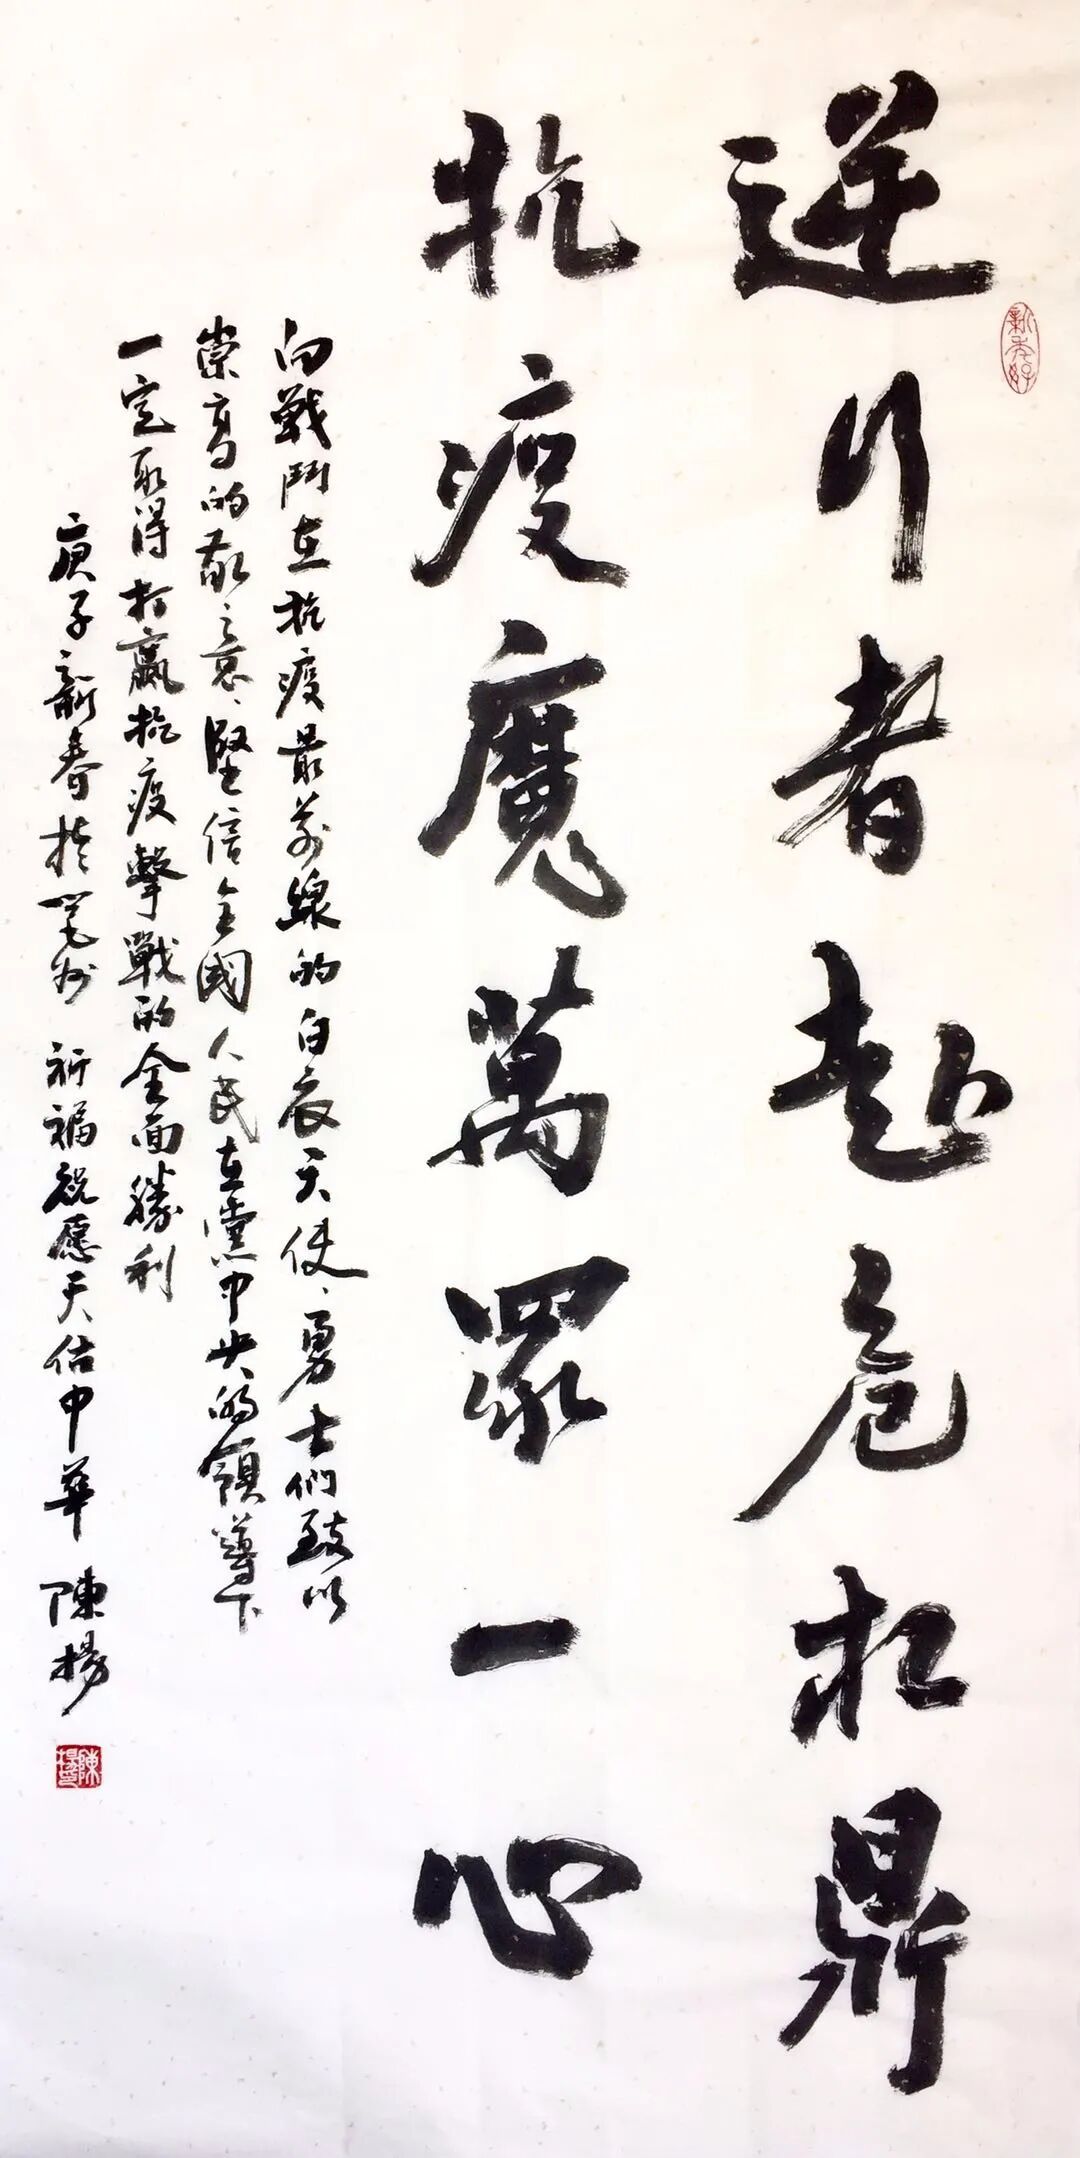 逆行者赴危扛鼎
抗疫魔萬眾一心
向戰鬥在抗疫最前線的白衣天使、勇士們致以
崇高的敬意、堅信全國人民在黨中央的領導下
一定取得打贏抗疫擊戰的全面勝利
庚子新春於 祈福祝愿天佑中華 陳揚